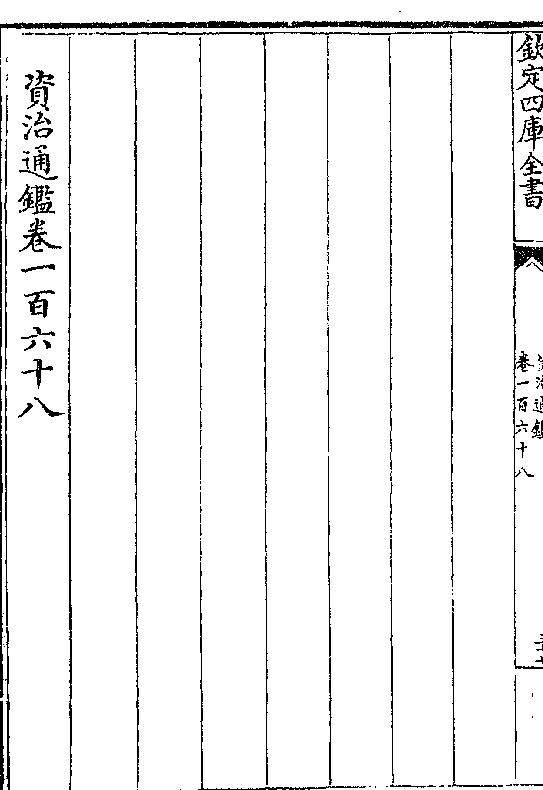 欽定四庫全書
資治通鑑
卷一百六十八
資治通鑑卷一百六十八